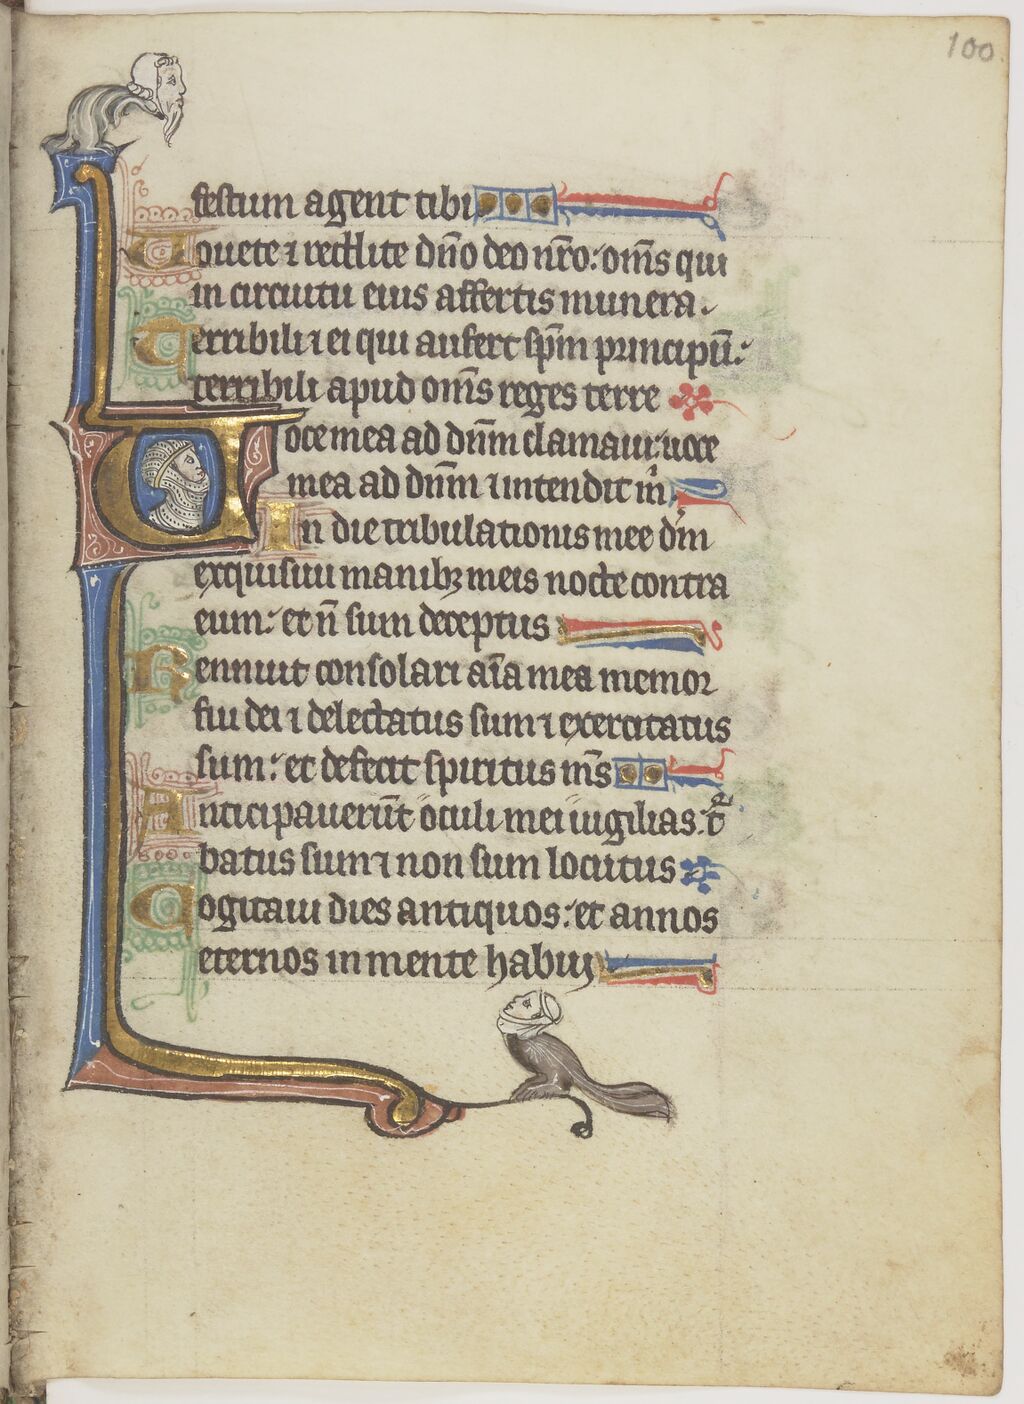 100
festum agent tibi
Uouete ⁊ reddite dño deo nr̃o: om̃s qui
in circuitu eius affertis munera.
Terribili ⁊ ei qui aufert sp̃m principũ:
terribili apud om̃s reges terre
Uoce mea ad dñm clamaui: uoce
mea ad dñm ⁊ intendit m̃
In die tribulationis mee dm̃
exquisiui manibꝫ meis nocte contra
eum: et ñ sum deceptus
Rennuit consolari aĩa mea memor
fui dei ⁊ delectatus sum ⁊ exercitatus
sum: et defecit spiritus m̃s
Anticipauerũt oculi mei uigilias: t̃
batus sum ⁊ non sum locutus
Cogitaui dies antiquos: et annos
eternos in mente habui